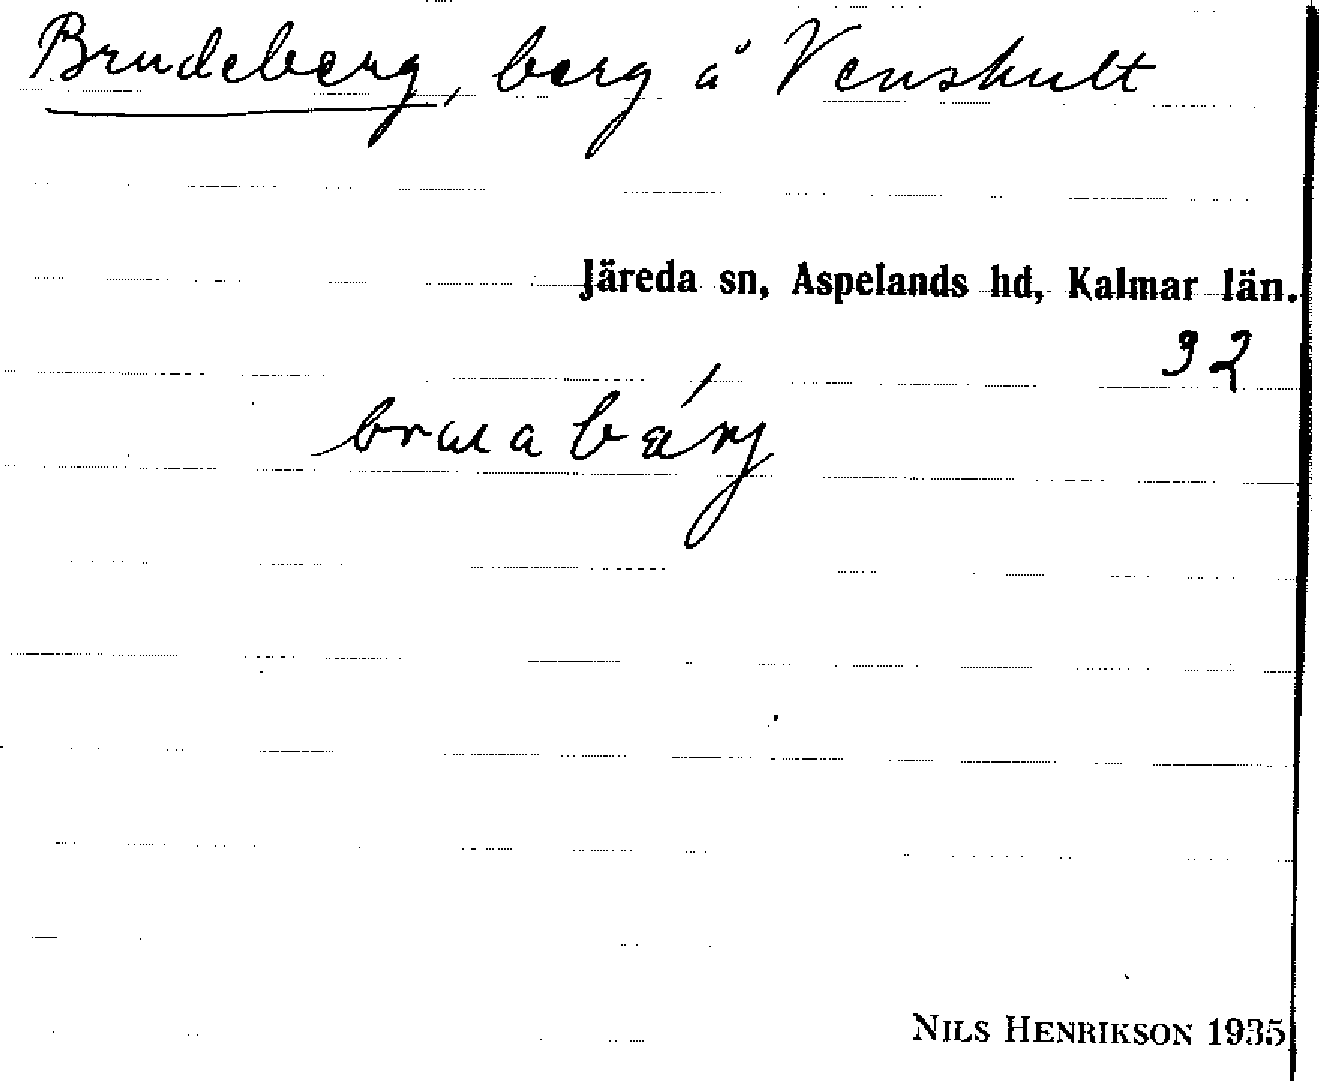 Brudeberg, berg å Venskult
Järeda sn, Aspelands hd, Kalmar län.
32
NILS HENRIKSON 1935